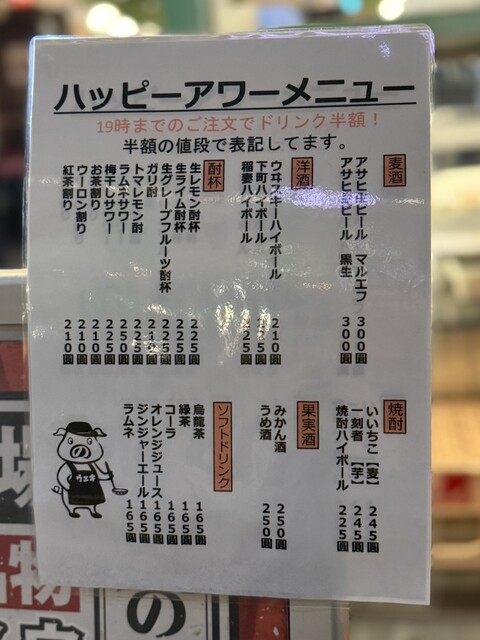 ハッピーアワーメニュー
19時までのご注文でドリンク半額！
半額の値段で表記してます。
麦酒
アサヒ生ビール マルエフ 300圓
アサヒ生ビール 黒生 300圓
洋酒
ウヰスキーハイボール 210圓
下町ハイボール
稲妻ハイボール 225圓
酎杯
生レモン酎杯 225圓
生ライム酎杯 225圓
生グレープフルーツ酎杯 225圓
ガリ酎
トマレモン酎 225圓
ラムネサワー 250圓
梅干しサワー 225圓
お茶割り 210圓
ウーロン割り 210圓
紅茶割り 210圓
焼酎
いいちこ【麦】 245圓
一刻者【芋】 245圓
焼酎ハイボール 225圓
果実酒
みかん酒 250圓
うめ酒 250圓
ソフトドリンク
烏龍茶 165圓
緑茶 165圓
コーラ 165圓
オレンジジュース 165圓
ジンジャーエール 165圓
ラムネ 165圓
ウエキ
場
物
の